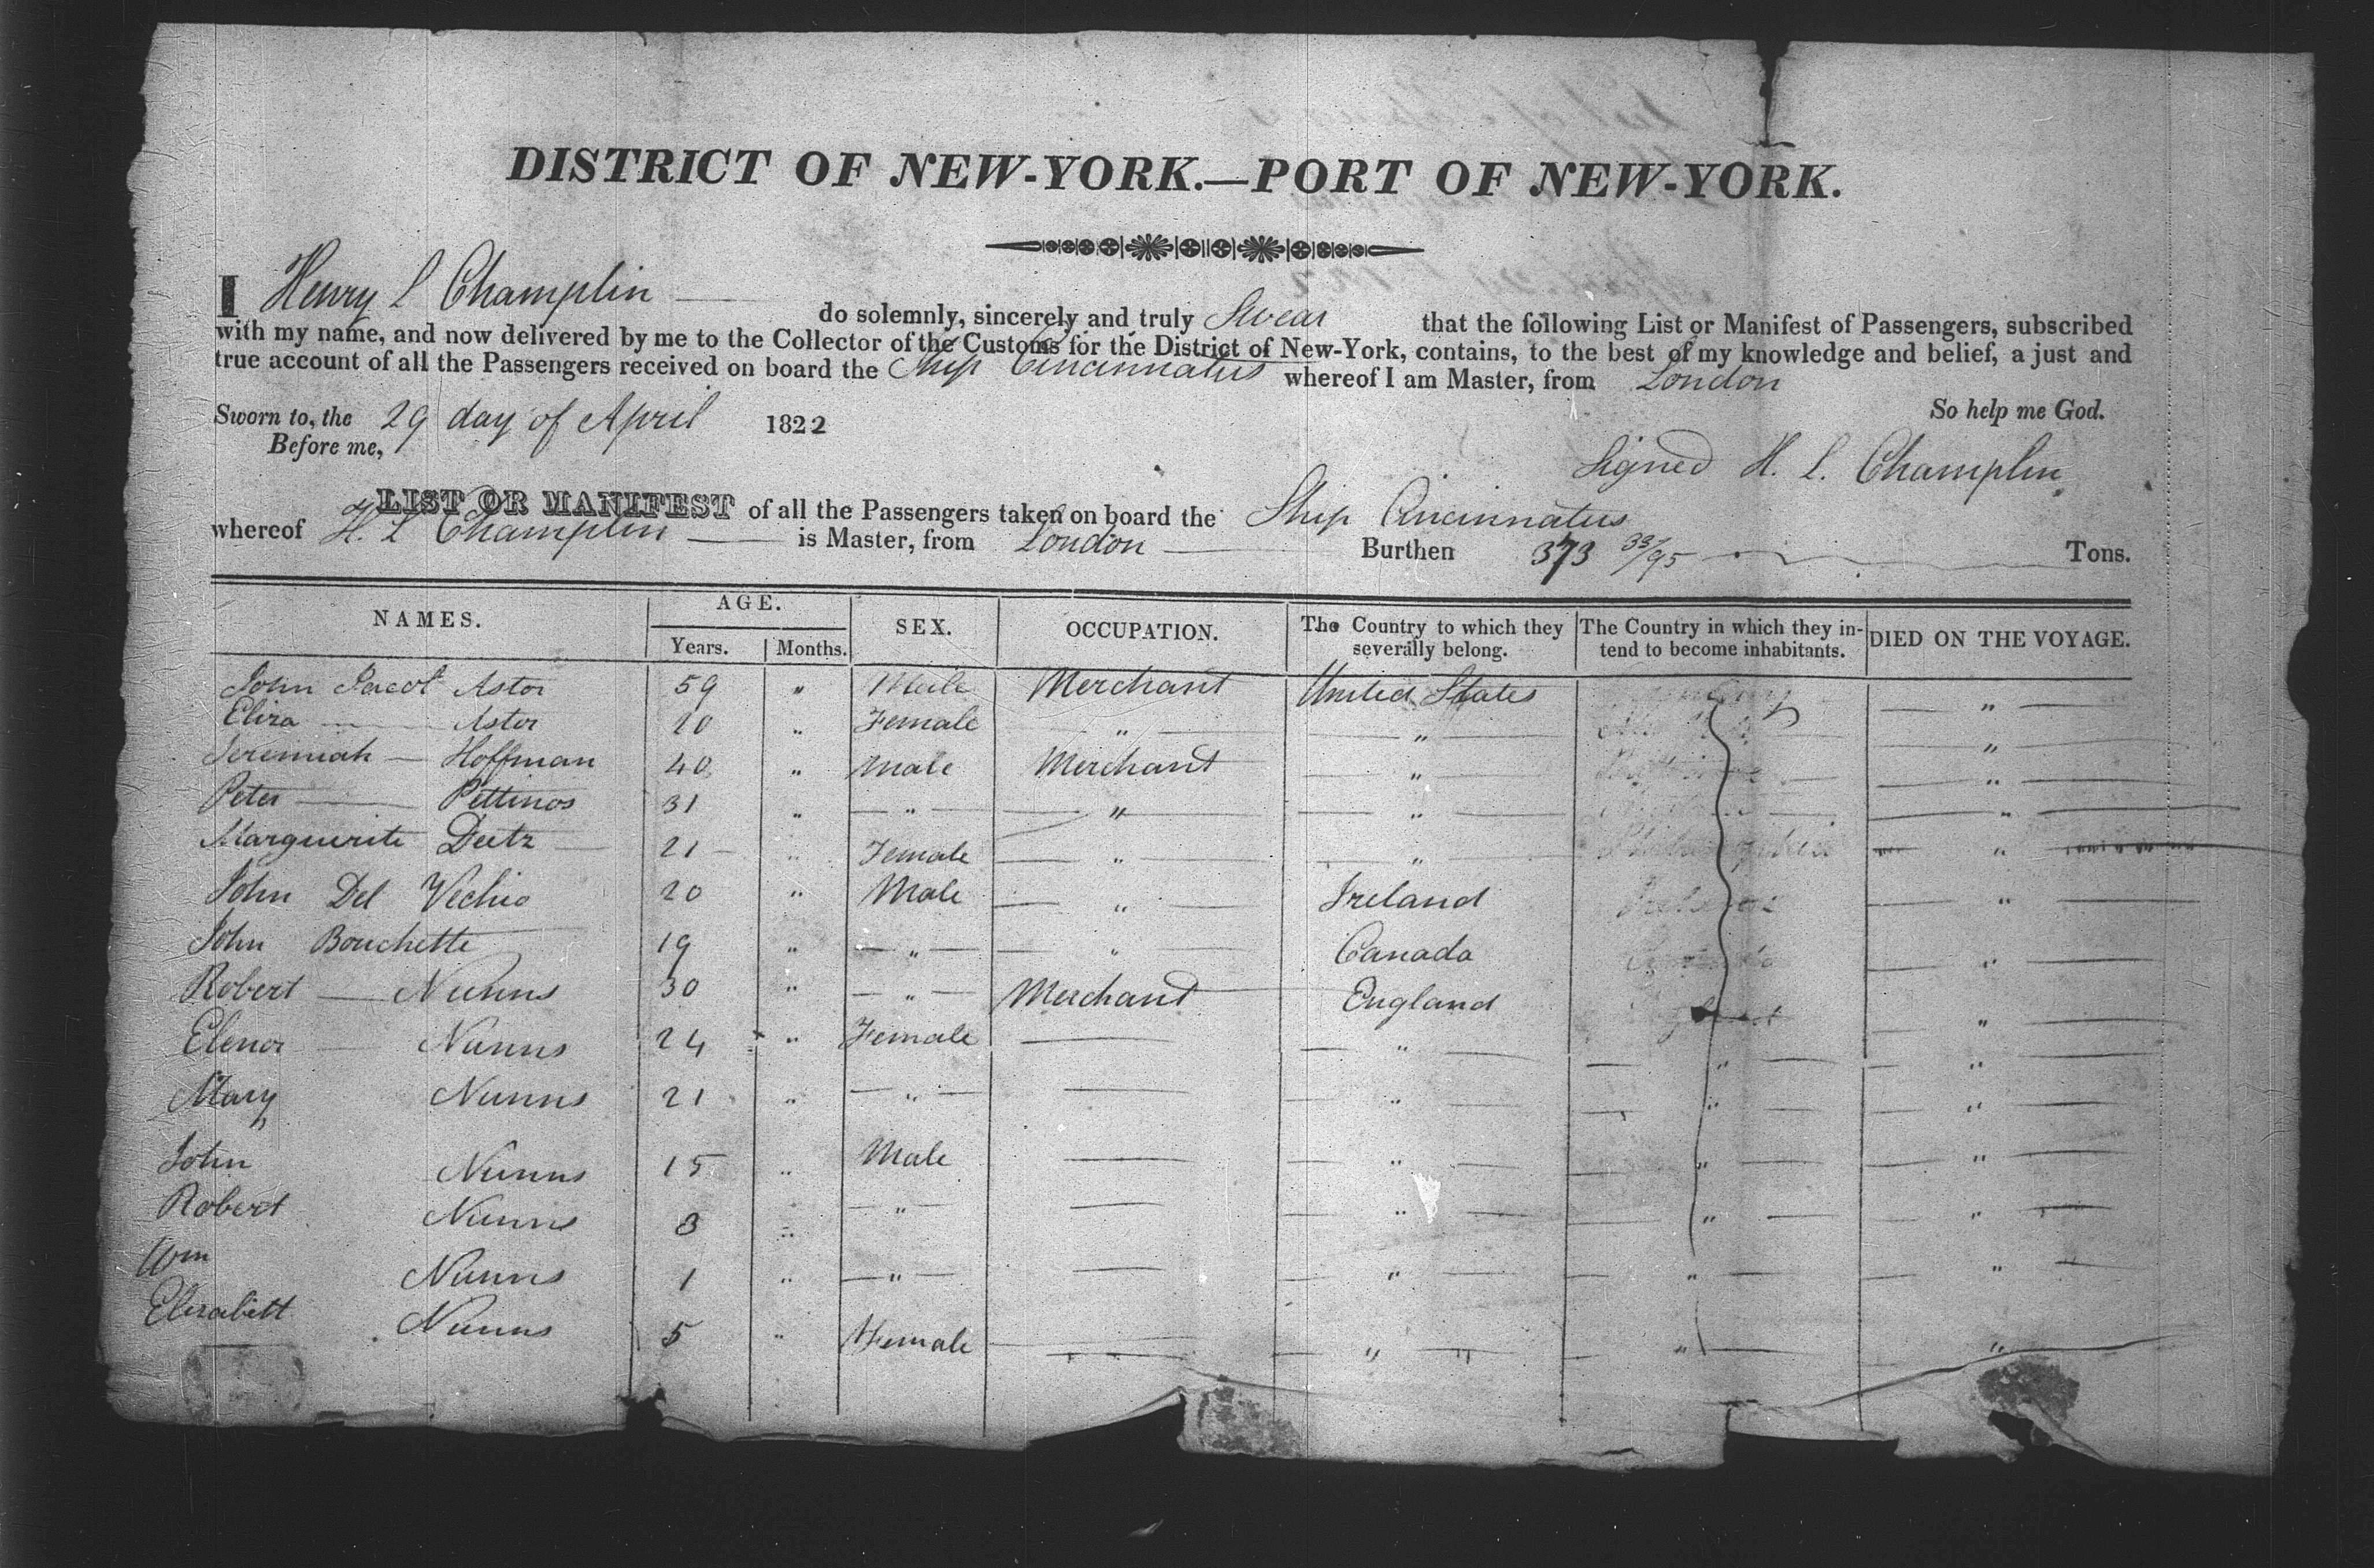 DISTRICT OF NEW-YORK.—PORT OF NEW-YORK.
I Henry L Champlin — do solemnly, sincerely and truly Swear that the following List or Manifest of Passengers, subscribed
with my name, and now delivered by me to the Collector of the Customs for the District of New-York, contains, to the best of my knowledge and belief, a just and
true account of all the Passengers received on board the Ship Cincinnatus whereof I am Master, from London
So help me God.
Sworn to, the 29 day of April 1822
Before me,
Signed H. L. Champlin
LIST OR MANIFEST of all the Passengers taken on board the Ship Cincinnatus
whereof H. L Champlin — is Master, from London — Burthen 373 33/95 — Tons.
NAMES. AGE. Years. Months. SEX. OCCUPATION. The Country to which they severally belong. The Country in which they intend to become inhabitants. DIED ON THE VOYAGE.
John Jacob Astor 59 " Male Merchant United States — " —
Eliza — Astor 20 " Female — " — — " — — " —
Jeremiah — Hoffman 40 " Male Merchant — " — — " —
Peter — Pettinos 31 " — " — — " — — " — — " —
Marguerite Deetz — 21 " Female — " — — " — Philadelphia — " —
John Del Vechio 20 " Male — " — Ireland Ireland — " —
John Bouchette 19 " — " — — " — Canada Canada — " —
Robert — Nunns 30 " — " — Merchant England — " —
Elenor — Nunns 24 " Female — — " — — " — — " —
Mary Nunns 21 " — " — — — " — — " — — " —
John Nunns 15 " Male — — " — — " — — " —
Robert Nunns 8 " — " — — — " — — " — — " —
Wm Nunns 1 " — " — — — " — — " — — " —
Elizabett Nunns 5 " Female — — " — — " — — " —